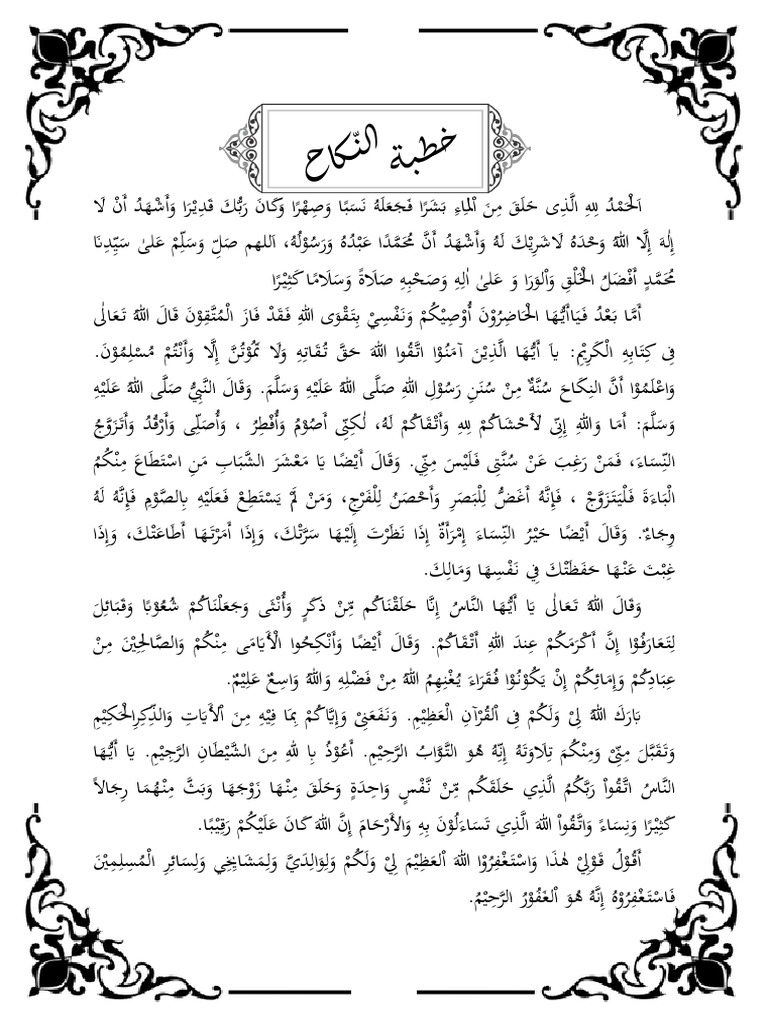 خطبة النّكاح
اَلْحَمْدُ لِلهِ الَّذِى خَلَقَ مِنَ الْمَاءِ بَشَرًا فَجَعَلَهُ نَسَبًا وَصِهْرًا وَكَانَ رَبُّكَ قَدِيْرَا وَأَشْهَدُ أَنْ لَا
إِلٰهَ إِلَّا اللهُ وَحْدَهُ لَاشَرِيْكَ لَهُ وَأَشْهَدُ أَنَّ مُحَمَّدًا عَبْدُهُ وَرَسُوْلُهُ، اَللهم صَلِّ وَسَلِّمْ عَلىٰ سَيِّدِنَا
مُحَمَّدٍ أَفْضَلُ الْخَلْقِ وَاْلوَرَا وَ عَلىٰ اٰلِهِ وَصَحْبِهِ صَلَاةً وَسَلَامًا كَثِيْرًا
أَمَّا بَعْدُ فَيَاأَيُّهَا الْحَاضِرُوْنَ أُوْصِيْكُمْ وَنَفْسِيْ بِتَقْوَى اللهِ فَقَدْ فَازَ الْمُتَّقِوْنَ قَالَ اللهُ تَعَالٰى
فِى كِتَابِهِ الْكَرِيْمِ: ياَ أَيُّهَا الَّذِيْنَ آمَنُوْا اتَّقُوا اللهَ حَقَّ تُقَاتِهِ وَلَا تَمُوْتُنَّ إِلَّا وَأَنْتُمْ مُسْلِمُوْنَ.
وَاعْلَمُوْا أَنَّ النِكَاحَ سُنَّةٌ مِنْ سُنَنِ رَسُوْلِ اللهِ صَلَّى اللهُ عَلَيْهِ وَسَلَّمَ. وَقَالَ النَّبِيُّ صَلَّى اللهُ عَلَيْهِ
وَسَلَّمَ: أَمَا وَاللهِ إِنِّى لَأَخْشَاكُمْ لِلهِ وَأَتْقَاكُمْ لَهُ، لٰكِنِّى أَصُوْمُ وَأُفْطِرُ ، وَأُصَلِّى وَأَرْقُدُ وَأَتَزَوَّجُ
النِّسَاءَ، فَمَنْ رَغِبَ عَنْ سُنَّتِى فَلَيْسَ مِنِّي. وَقَالَ أَيْضًا يَا مَعْشَرَ الشَّبَابِ مَنِ اسْتَطَاعَ مِنْكُمُ
الْبَاءَةَ فَلْيَتَزَوَّجْ ، فَإِنَّهُ أَغَضُّ لِلْبَصَرِ وَأَحْصَنُ لِلْفَرْجِ، وَمَنْ لَمْ يَسْتَطِعْ فَعَلَيْهِ بِالصَّوْمِ فَإِنَّهُ لَهُ
وِجَاءٌ. وَقَالَ أَيْضًا خَيْرُ النِّسَاءَ إِمْرَأَةٌ إِذَا نَظَرْتَ إِلَيْهَا سَرَّتْكَ، وَإِذَا أَمَرْتَهَا أَطَاعَتْكَ، وَإِذَا
غِبْتَ عَنْهَا حَفَظَتْكَ فِي نَفْسِهَا وَمَالِكَ.
وَقَالَ اللهُ تَعَالٰى يَا أَيُّهَا النَّاسُ إِنَّا خَلَقْنَاكُم مِّنْ ذَكَرٍ وَأُنْثَى وَجَعَلْنَاكُمْ شُعُوْبًا وَقَبَائِلَ
لِتَعَارَفُوْا إِنَّ أَكْرَمَكُمْ عِندَ اللهِ أَتْقَاكُمْ. وَقَالَ أَيْضًا وَأَنْكِحُوا الْأَيَامَى مِنْكُمْ وَالصَّالِحِيْنَ مِنْ
عِبَادِكُمْ وَإِمَائِكُمْ إِنْ يَكُوْنُوْا فُقَرَاءَ يُغْنِهِمُ اللهُ مِنْ فَضْلِهِ وَاللهُ وَاسِعٌ عَلِيْمٌ.
بَارَكَ اللهُ لِيْ وَلَكُمْ فِى الْقُرْآنِ الْعَظِيْمِ. وَنَفَعَنِيْ وَإِيَّاكُمْ بِمَا فِيْهِ مِنَ اْلأَيَاتِ وَالذِّكِرِالْحَكِيْمِ
وَتَقَبَّلَ مِنِّيْ وَمِنْكُمَ تِلَاوَتَهُ إِنَّهُ هُوَ التَّوَّابُ الرَّحِيْمِ. أَعُوْذُ بِا للهِ مِنَ الشَّيْطَانِ الرَّجِيْمِ. يَا أَيُّهَا
النَّاسُ اتَّقُواْ رَبَّكُمُ الَّذِي خَلَقَكُم مِّنْ نَّفْسٍ وَاحِدَةٍ وَخَلَقَ مِنْهَا زَوْجَهَا وَبَثَّ مِنْهُمَا رِجَالاً
كَثِيْرًا وَنِسَاءً وَاتَّقُواْ اللهَ الَّذِي تَسَاءَلُوْنَ بِهِ وَالأَرْحَامَ إِنَّ اللهَ كَانَ عَلَيْكُمْ رَقِيْبًا.
أَقُوْلُ قَوْلِيْ هٰذَا وَاسْتَغْفِرُوْا اللهَ اْلعَظِيْمَ لِيْ وَلَكُمْ وَلِوَالِدَيَّ وَلِمَشَايِخِي وَلِسَائِرِ الْمُسِلِمِيْنَ
فَاسْتَغْفِرُوْهُ إِنَّهُ هُوَ اْلغَفُوْرُ الرَّحِيْمُ.